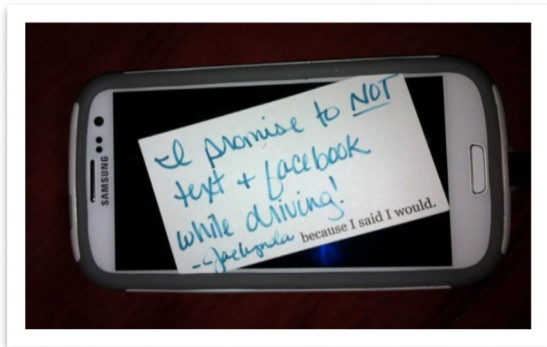 SAMSUNG
I promise to NOT
text + facebook
while driving!
-Jaclynda because I said I would.